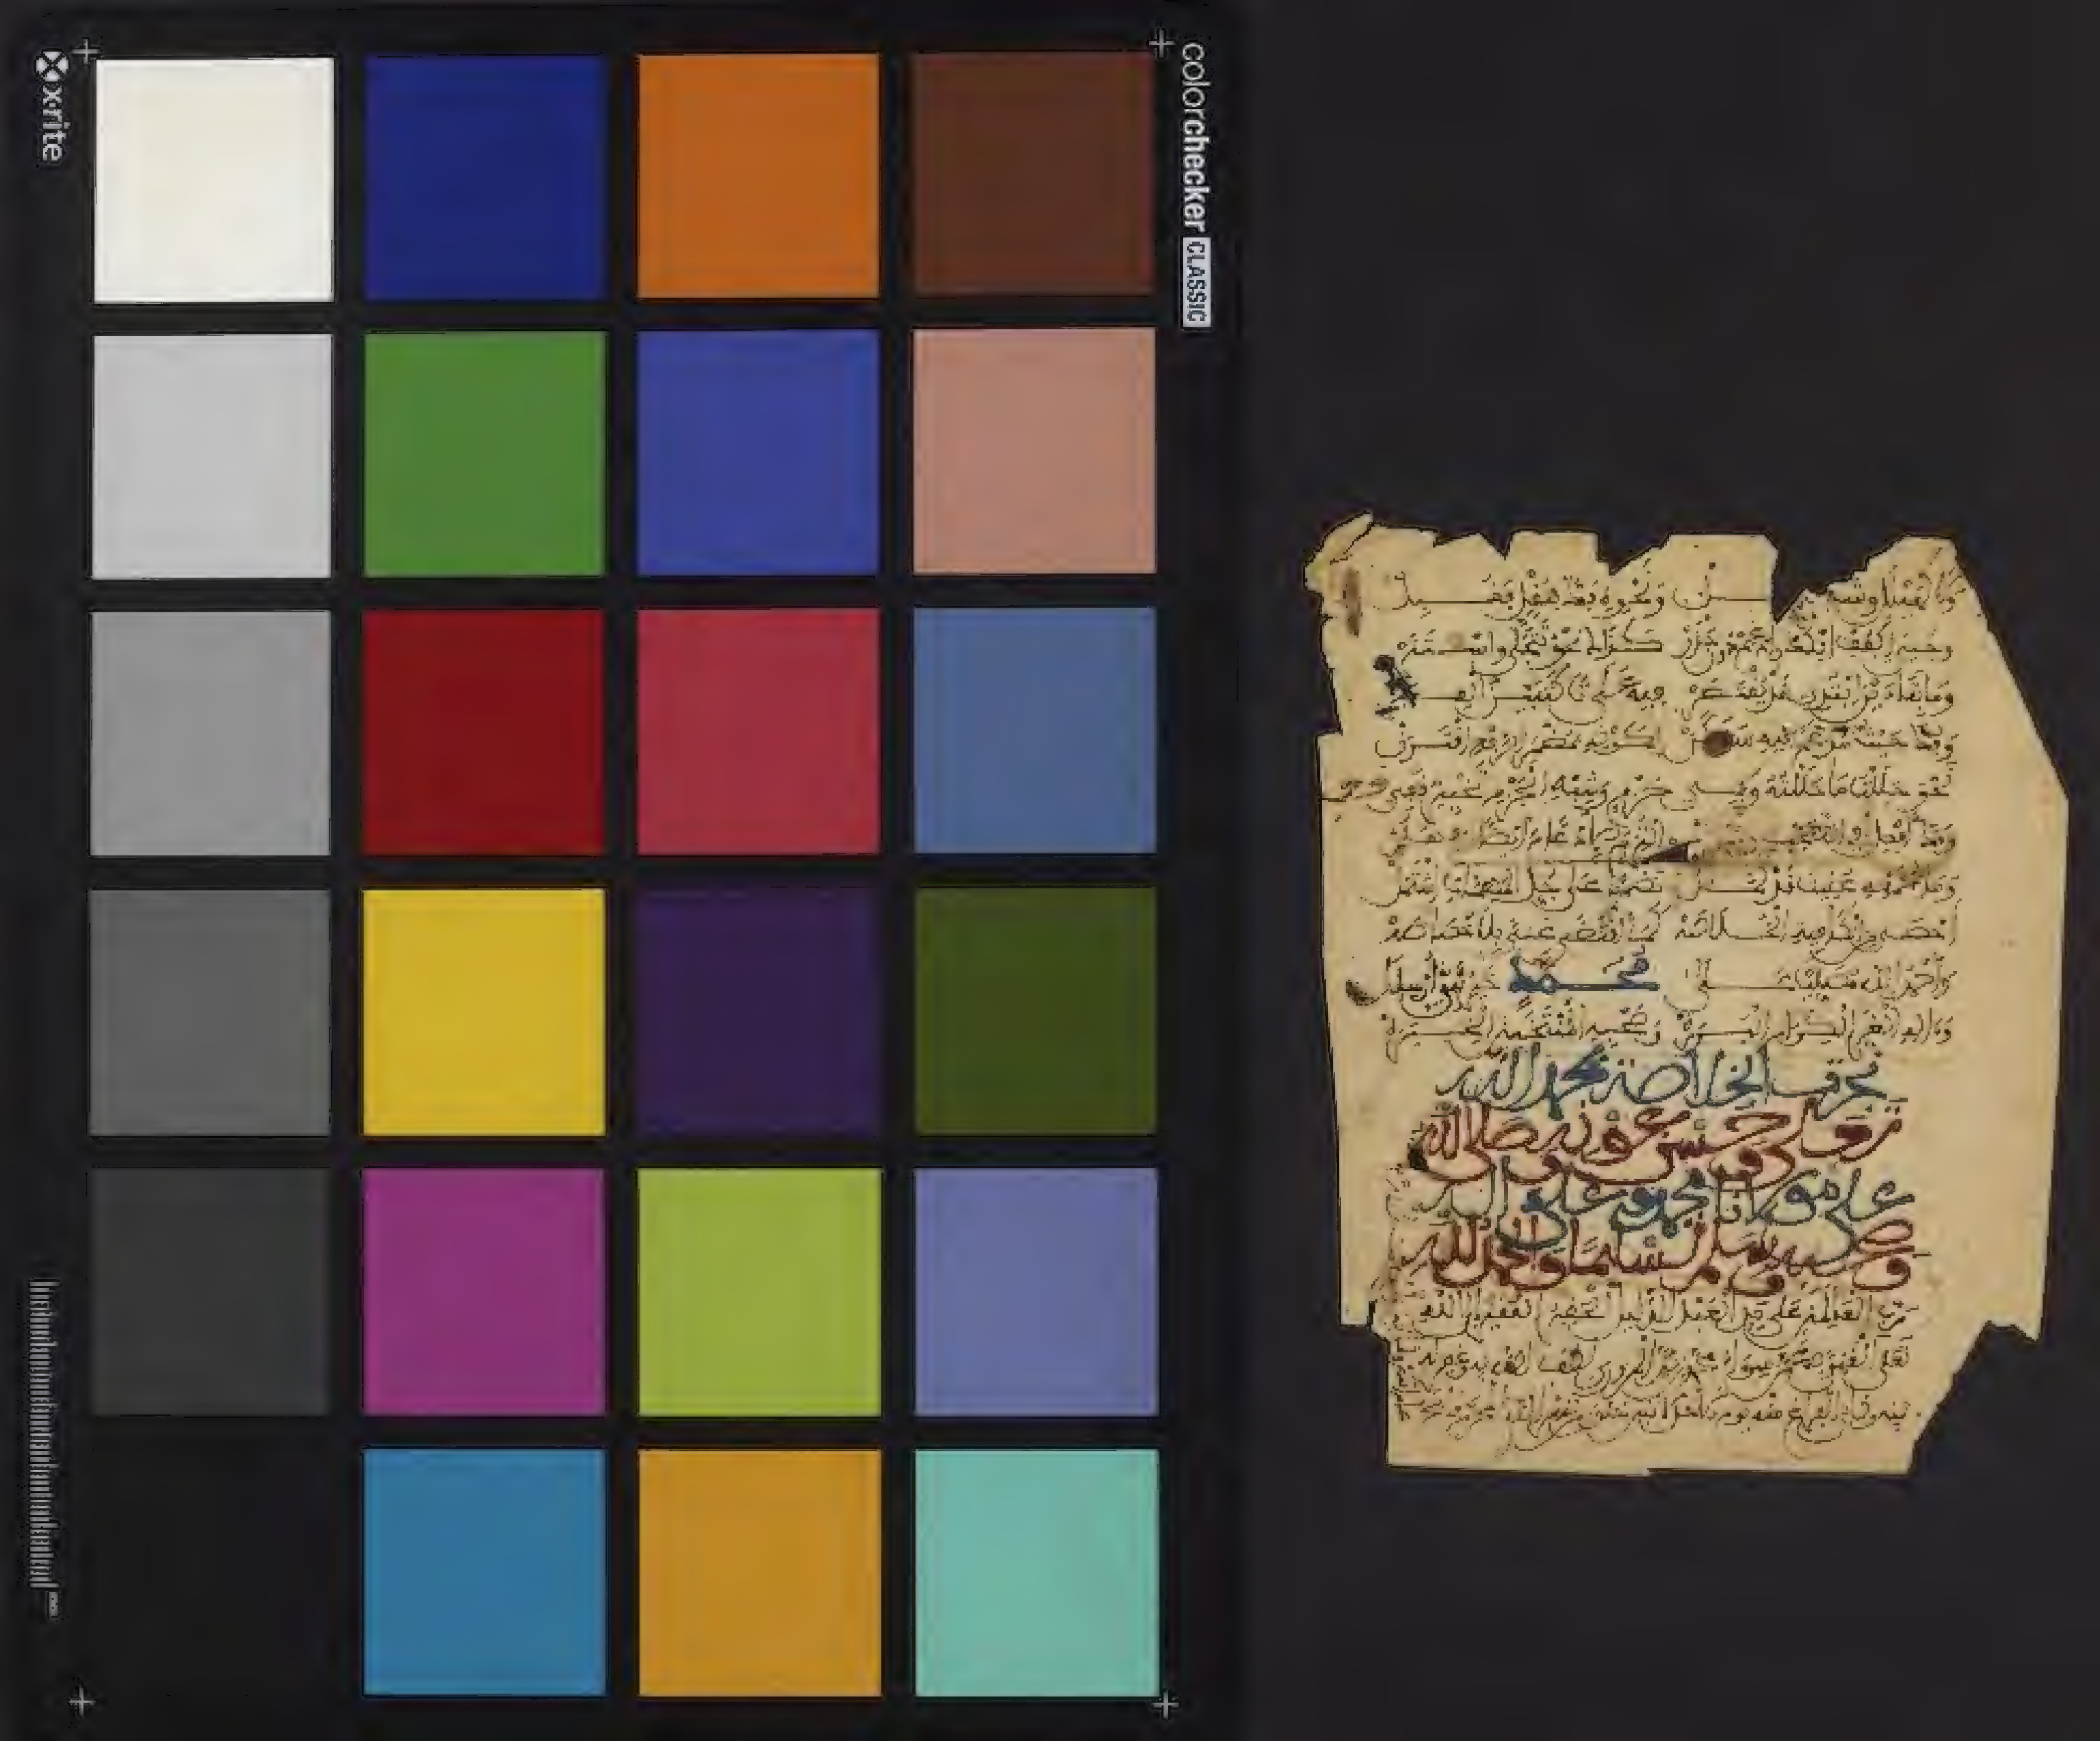 x·rite
colorchecker CLASSIC
ونحوه فك بنقل فقبل
وحيي افكك وادغم دون حذر كذاك نحو تتجلى واستتر
وما بتاءين ابتدي قد يقتصر فيه على تا كتبين العبر
وفك حيث مدغم فيه سكن لكونه بمضمر الرفع اقترن
نحو حللت ما حللته وفي جزم وشبه الجزم تخيير قفي
وفك افعل في التعجب التزم والتزم الادغام ايضا في هلم
وما بجمعه عنيت قد كمل نظما على جل المهمات اشتمل
احصى من الكافية الخلاصة كما اقتضى غنى بلا خصاصة
واحمد الله مصليا على محمد خير نبي ارسلا
وءاله الغر الكرام البررة وصحبه المنتخبين الخيرة
نجزت الخلاصة بحمد الله
وحسن عونه صلى الله
على مولانا محمد وعلى اله
وصحبه وسلم تسليما والحمد لله
رب العلمين على يد العبد الذليل الحقير الفقير الى الله
تعلى